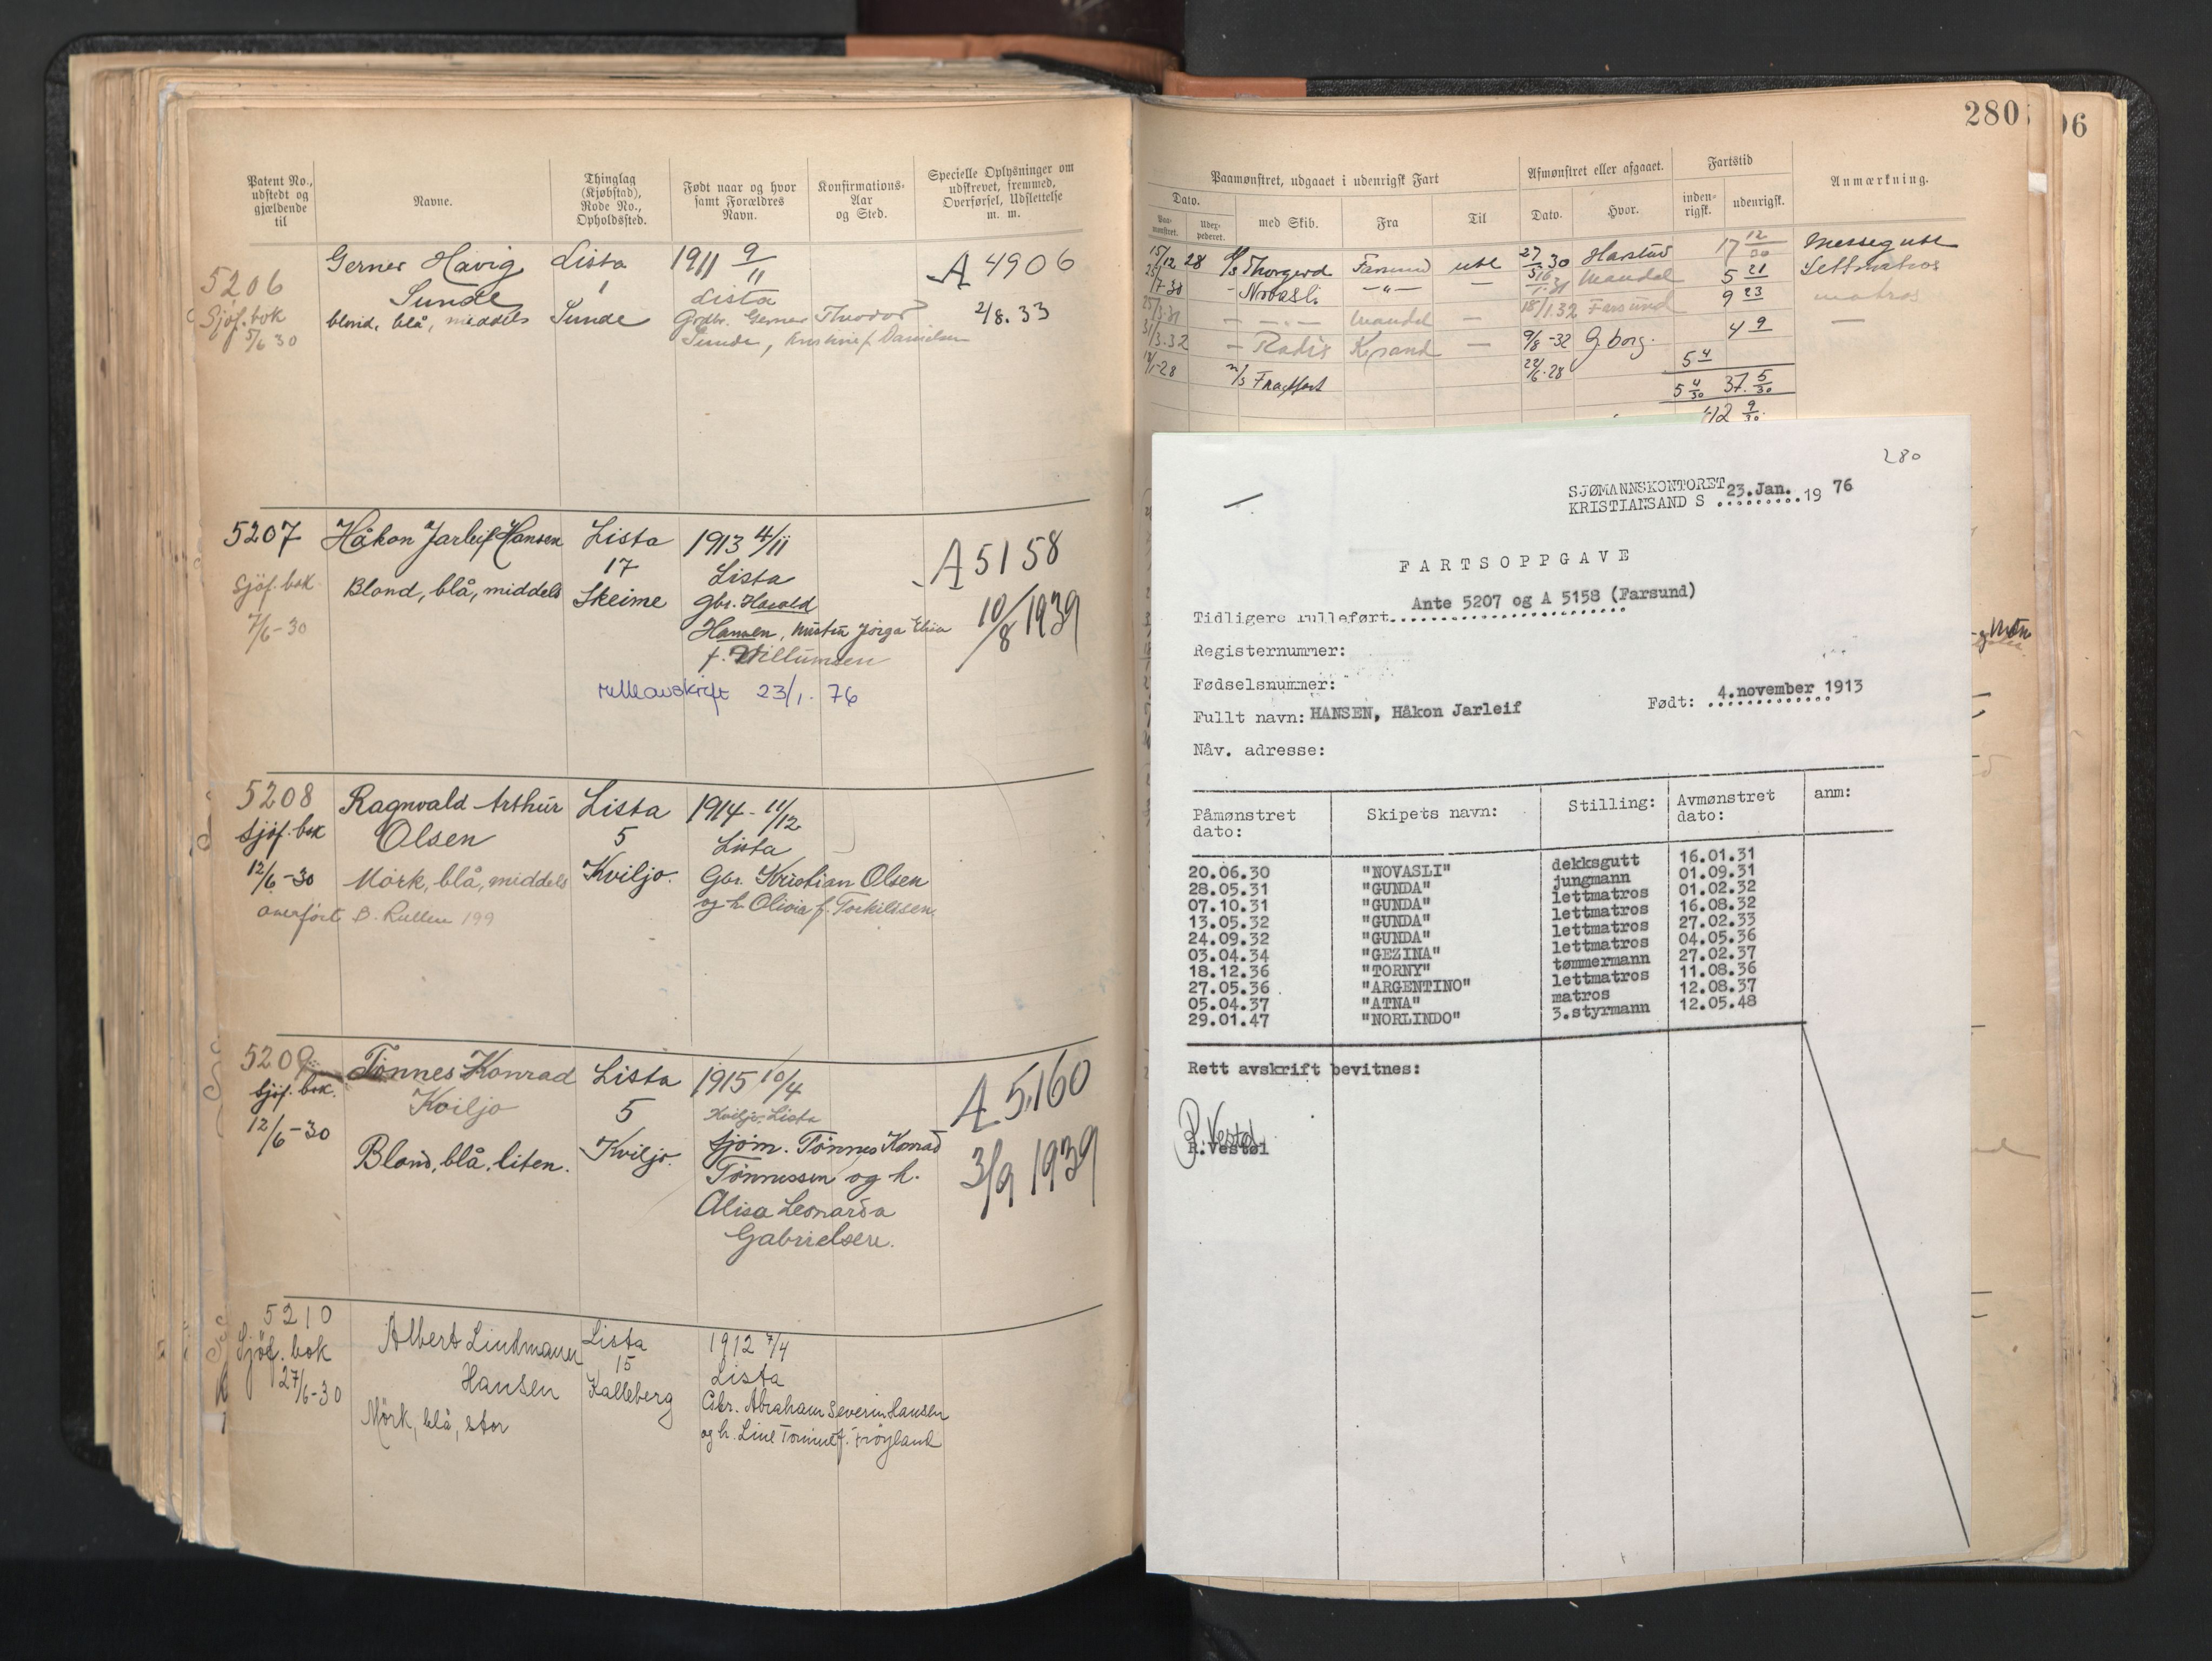 280
96
Patent No.,
udstedt og
gjældende
til
Navne.
Thinglag
(Kjøbstad),
Rode No.,
Opholdssted.
Født naar og hvor
samt Forældres
Navn.
Konfirmations-
Aar
og Sted.
Specielle Oplysninger om
udskrevet, fremmed,
Overførsel, Udslettelse
m. m.
5206
Sjöf. bok
5/6 30
Gerner Havig
Sunde
blond, blå, middels
Lista
1
Sunde
1911 9/11
Lista
Grdbr. Gerner Theodor
Sunde, Kristine f. Danielsen
A 4906
2/8. 33
5207
Sjöf. bok
7/6-30
Håkon Jarleif Hansen
Blond, blå, middels
Lista
17
Skeime
1913 4/11
Lista
Gbr. Harald
Hansen, hustru Jörga Elisa
f. Willumsen
A 5158
10/8 1939
rulleavskrift 23/1. 76
5208
Sjöf. bok
12/6-30
overfört B. Rullen 199
Ragnvald Arthur
Olsen
Mörk, blå, middels
Lista
5
Kviljo.
1914 - 11/12
Lista
Gbr. Kristian Olsen
og h. Olivia f. Torkildsen
5209
Sjöf. bok.
12/6-30
Tönnes Konrad
Kviljo
Blond, blå, liten.
Lista
5
Kviljo.
1915 10/4
Kviljo, Lista
Sjöm. Tönnes Konrad
Tönnessen og h.
Alisa Leonarda
Gabrielsen.
A 5160
3/9 1939
5210
Sjöf. bok
27/6-30
Albert Lindmann
Hansen
Mörk, blå, stor
Lista
15
Kalleberg
1912 7/4
Lista
Gbr. Abraham Severin Hansen
og h. Line Tomine f. Fröyland
Paamønstret, udgaaet i udenrigsk Fart
Afmønstret eller afgaaet.
Fartstid
Anmærkning.
Dato.
Paa-
mønstret.
Uder-
pederet.
med Skib.
Fra
Til
Dato.
Hvor.
inden-
rigsk.
udenrigsk.
15/12 28 S/S Thorgerd Farsund utl 27 30 Harstad 17 12/30 Messegutt
7-30 - Novasli -"- - Mandal 5 21 Lettmatros
- -"- Mandal - 18/1.32 Farsund 9 23 matros
31/3.32 - Radis K.sand - 9/8-32 G.borg. 4 9 -
22/6-28 5 4
5 4/30 37. 5/30
42 9/30.
280
SJØMANNSKONTORET
KRISTIANSAND S 23.Jan. 19 76
FARTSOPPGAVE
Tidligere rulleført Ante 5207 og A 5158 (Farsund)
Registernummer:
Fødselsnummer:
Fullt navn: HANSEN, Håkon Jarleif Født: 4.november 1913
Nåv. adresse:
Påmønstret
dato:
Skipets navn:
Stilling:
Avmønstret
dato:
anm:
20.06.30 "NOVASLI" dekksgutt 16.01.31
28.05.31 "GUNDA" jungmann 01.09.31
07.10.31 "GUNDA" lettmatros 01.02.32
13.05.32 "GUNDA" lettmatros 16.08.32
24.09.32 "GUNDA" lettmatros 27.02.33
03.04.34 "GEZINA" lettmatros 04.05.36
18.12.36 "TORNY" tømmermann 27.02.37
27.05.36 "ARGENTINO" lettmatros 11.08.36
05.04.37 "ATNA" matros 12.08.37
29.01.47 "NORLINDO" 3.styrmann 12.05.48
Rett avskrift bevitnes:
R. Vestøl
R. Vestøl